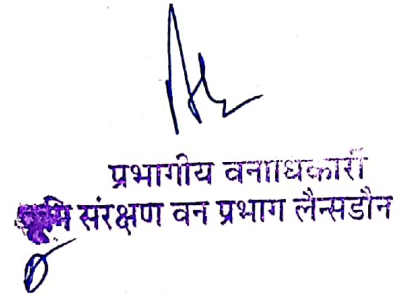 प्रभागीय वनाधिकारी
भूमि संरक्षण वन प्रभाग लैन्सडौन